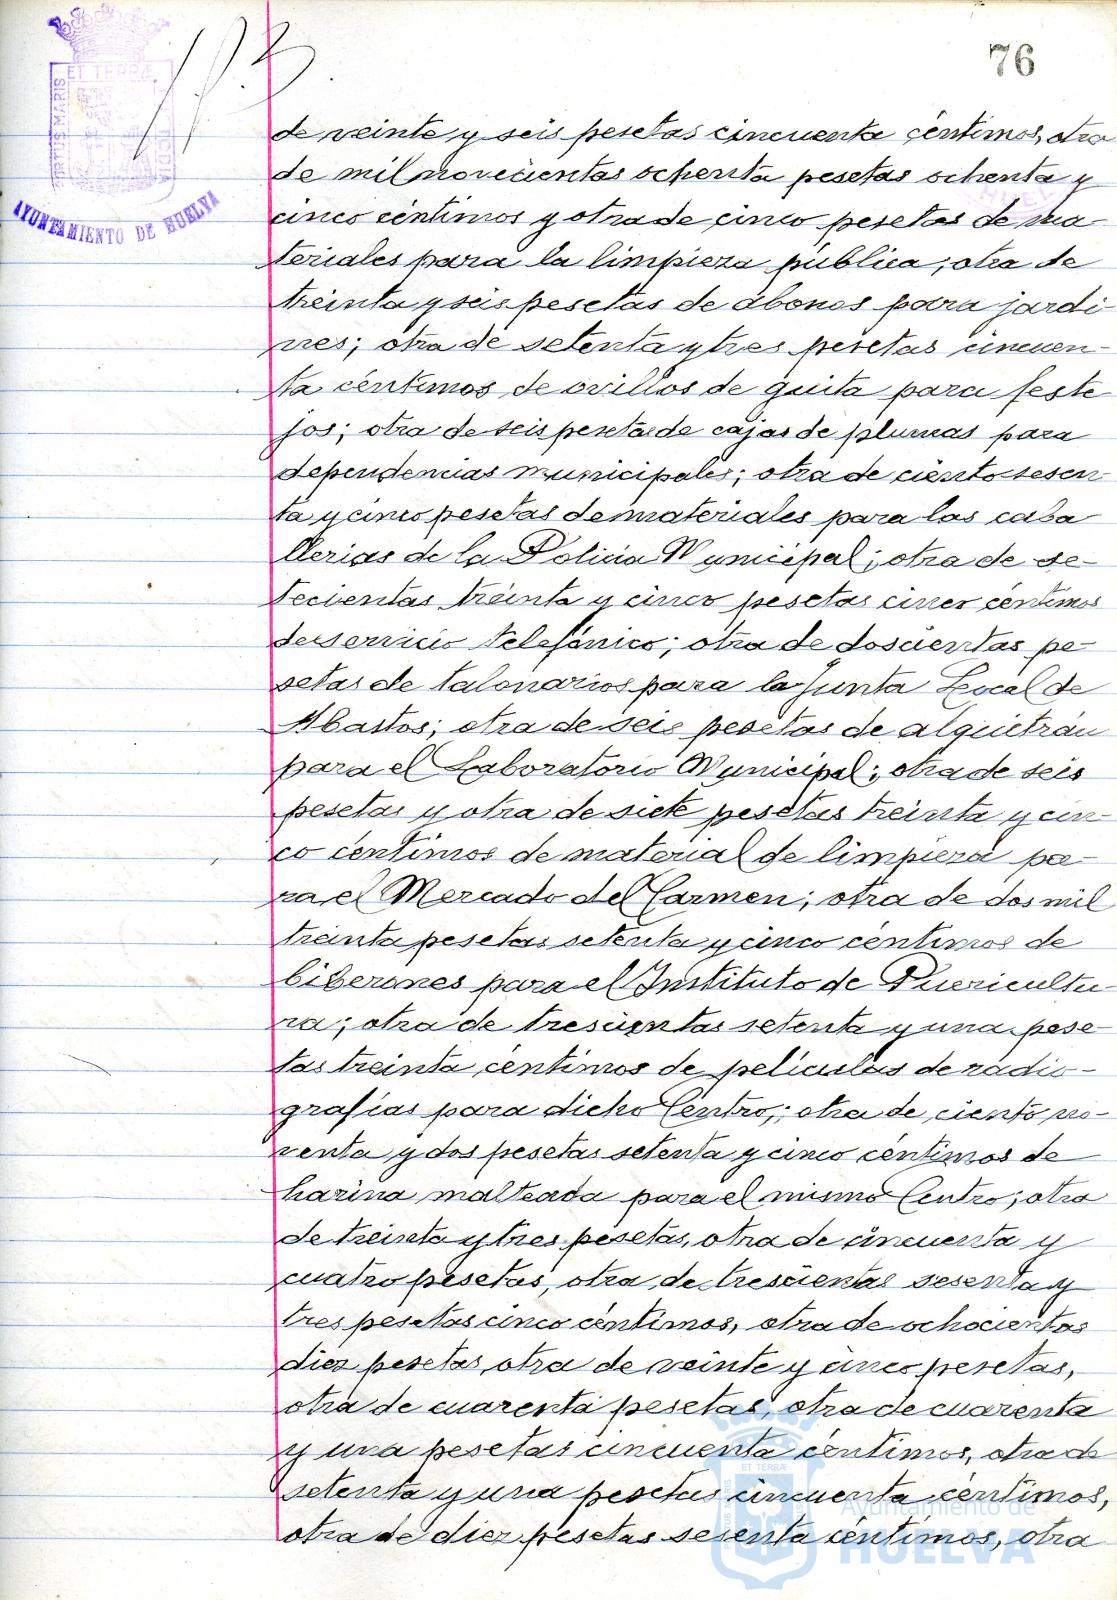 76
ET TERRÆ
VIRTUS MARIS
AYUNTAMIENTO DE HUELVA
de veinte y seis pesetas cincuenta céntimos, otra
de mil novecientas ochenta pesetas ochenta y
cinco céntimos y otra de cinco pesetas de ma-
teriales para la limpieza pública; otra de
treinta y seis pesetas de abonos para jardi-
nes; otra de setenta y tres pesetas cincuen-
ta céntimos de ovillos de guita para feste
jos; otra de seis pesetas de cajas de plumas para
dependencias municipales; otra de ciento sesen-
ta y cinco pesetas de materiales para las caba
llerias de la Policia Municipal; otra de se-
tecientas treinta y cinco pesetas cinco céntimos
de servicio telefónico; otra de doscientas pe-
setas de talonarios para la Junta Local de
Abastos; otra de seis pesetas de alquitrán
para el Laboratorio Municipal; otra de seis
pesetas y otra de siete pesetas treinta y cin-
co céntimos de material de limpieza pa-
ra el Mercado del Carmen; otra de dos mil
treinta pesetas setenta y cinco céntimos de
biberones para el Instituto de Puericultu-
ra; otra de trescientas setenta y una pese-
tas treinta céntimos de películas de radio-
grafías para dicho Centro; otra de ciento no-
venta y dos pesetas setenta y cinco céntimos de
harina malteada para el mismo Centro; otra
de treinta y tres pesetas, otra de cincuenta y
cuatro pesetas, otra de trescientas sesenta y
tres pesetas cinco céntimos, otra de ochocientas
diez pesetas, otra de veinte y cinco pesetas,
otra de cuarenta pesetas, otra de cuarenta
y una pesetas cincuenta céntimos, otra de
setenta y una pesetas cincuenta céntimos,
otra de diez pesetas sesenta céntimos, otra
Ayuntamiento de
HUELVA